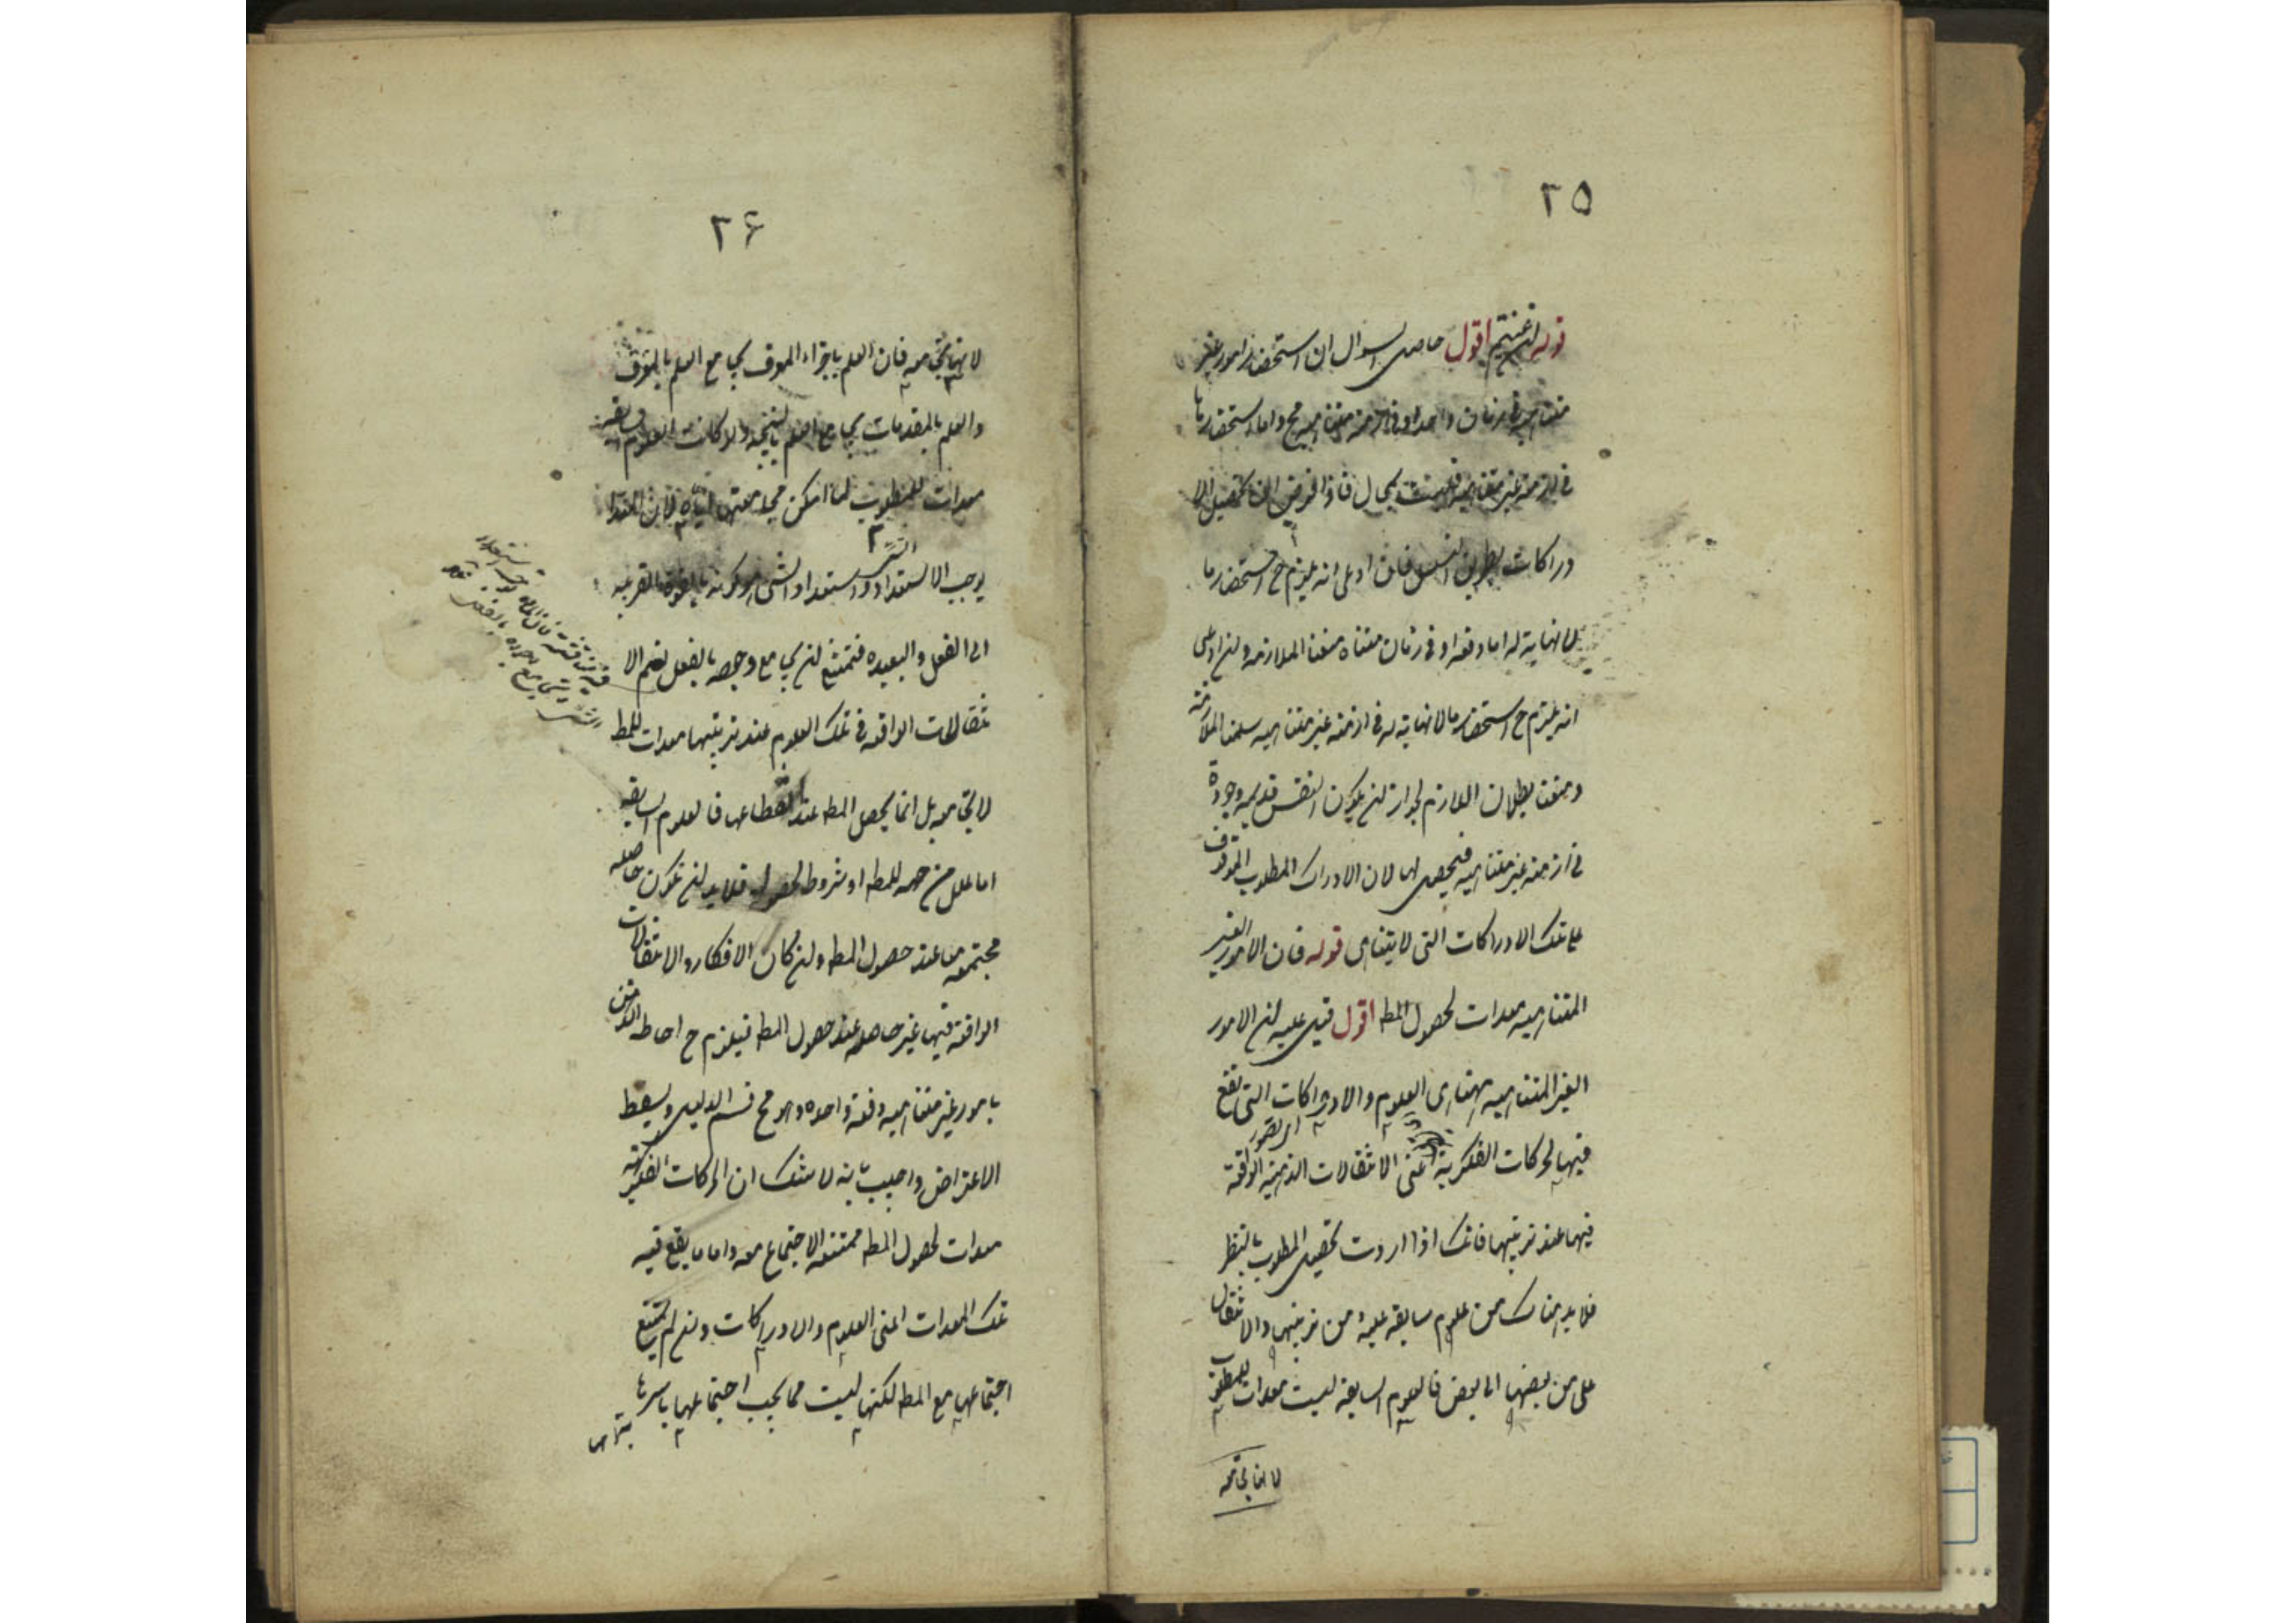 ٢٥
قوله ان عنيتم اقول حاصل السوال ان استحضار امور غير
متناهية في زمان واحد او في ازمنة متناهية مح واما استحضارها
في ازمنة غير متناهية فليست بمحال فاذا فرض ان تحصيل الا
دراكات بطريق التسلسل فان ادعى انه يلزم ح استحضار ما
لا نهاية له اما دفعة او في زمان متناه منعنا الملازمة وان ادعى
انه يلزم ح استحضار ما لا نهاية له في ازمنة غير متناهية سلمنا الملازمة
ومنعنا بطلان اللازم لجواز ان يكون النفس قديمة موجودة
في ازمنة غير متناهية فيحصل لها الان الادراك المطلوب الموقوف
على تلك الادراكات التى لا يتناهى قوله فان الامور الغير
المتناهية معدات لحصول المط اقول قيل عليه ان الامور
الغير المتناهية هنا هى العلوم والادراكات التى تقع
فيها الحركات الفكرية اعنى الانتقالات الذهنية الواقعة
فيها عند ترتيبها فانك اذا اردت تحصيل المطلوب بالنظر
فلا بد هناك من علوم سابقة عليه من ترتيبها والانتقال
من بعضها الى بعض فالعلوم السابقة ليست معدات للمطلوب
لانها تجامعه
٢۶
لانها تجامعه فان العلم باجزاء المعرف يجامع العلم بالمعرف
والعلم بالمقدمات يجامع العلم بالنتيجة ولو كانت العلوم السابقة
معدات للمطلوب لما امكن مجامعتها اياه لان المعد
يوجب الاستعداد واستعداد الشى هو كونه بالقوة القريبة
الى الفعل والبعيدة فيمتنع ان يجامع وجوده بالفعل نعم الا
نتقالات الواقعة في تلك العلوم عند ترتيبها معدات للمط
لا يجامعه بل انما يحصل المط عند انقطاعها فالعلوم السابقة
اما علل موجبة للمط او شروط لحصوله فلا بد ان تكون حاصلة
مجتمعة معا عند حصول المط وان كان الافكار والانتقالات
الواقعة فيها غير حاصلة عند حصول المط فيلزم ح احاطة الذهن
بامور غير متناهية دفعة واحدة وهو مح فتم الدليل ويسقط
الاعتراض واجيب بانه لا شك ان الحركات الفكرية
معدات لحصول المط ممتنعة الاجتماع معه واما ما يقع فيه
تلك المعدات اعنى العلوم والادراكات وان لم يمتنع
اجتماعها مع المط لكنها ليست مما يجب اجتماعها باسرها